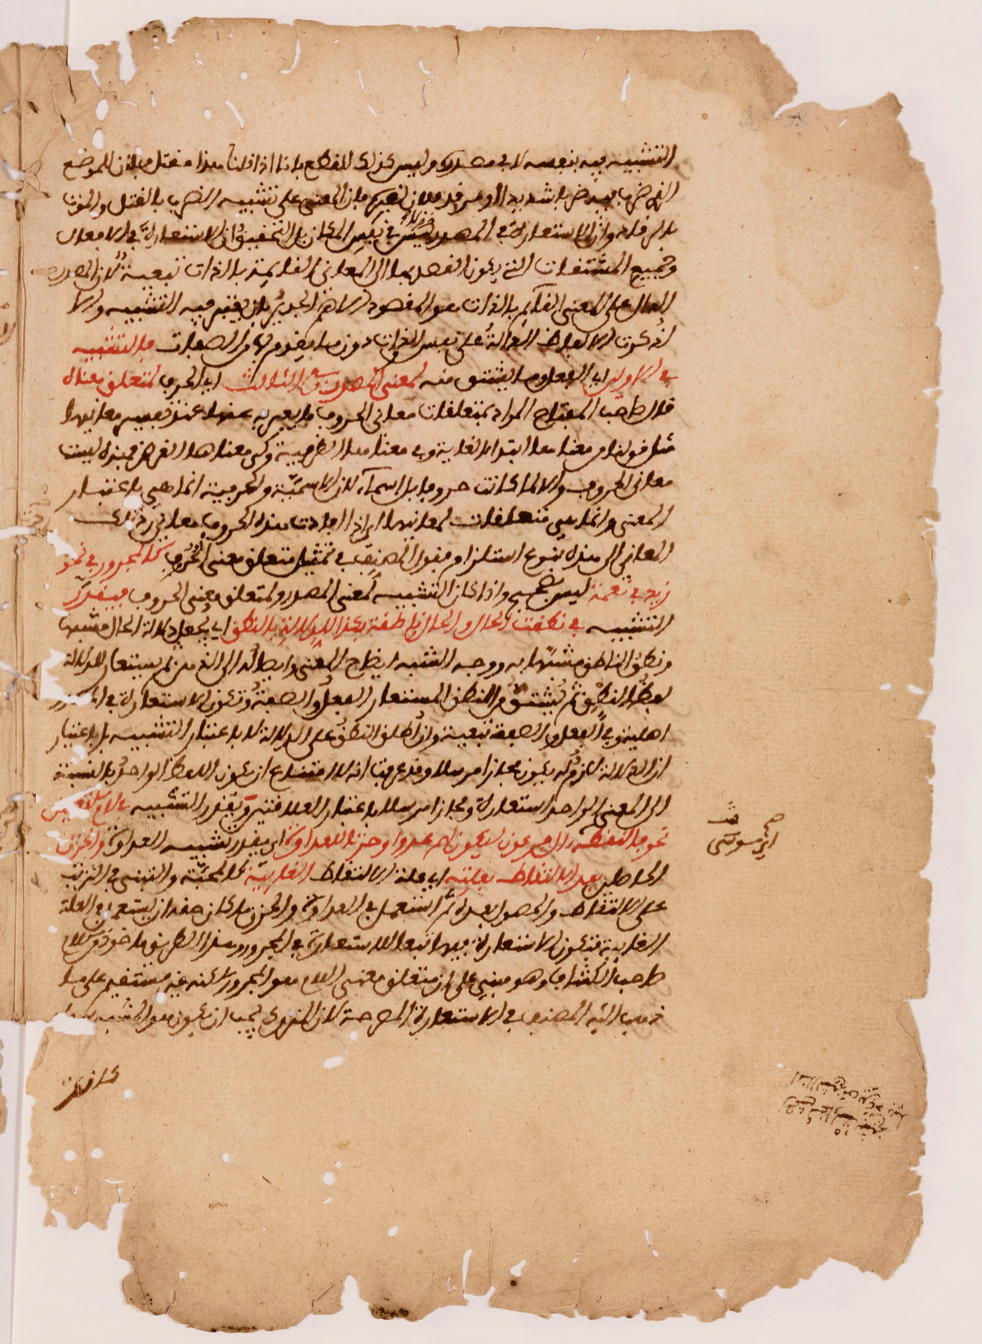 التشبيه فيه بنفسه لا في مصدره وليس كذلك للقطع بانا اذا قلنا هذا مقتل فلان للموضع
الذي ضرب فيه ضربا شديدا او مرقد فلان لقبره فان المعنى على تشبيه الضرب بالقتل والموت
بالرقاد وان الاستعارة في المصدر لا في نفس المكان بل التحقيق ان الاستعارة في الافعال
وجميع المشتقات التي يكون القصد بها الى المعاني القائمة بالذات تبعية لان المصدر
الدال على المعنى القائم بالذات هو المقصود الاهم الجدير بان يعتبر فيه التشبيه والا
لذكرت الالفاظ الدالة على نفس الذوات دون ما يقوم بها من الصفات فالتشبيه
في الاولين اي الفعل وما يشتق منه لمعنى المصدر وفي الثالث اي الحرف لمتعلق معناه
قال صاحب المفتاح المراد بمتعلقات معاني الحروف ما يعبر به عنها عند تفسير معانيها
مثل قولنا من معناها ابتداء الغاية وفي معناها الظرفية وكي معناها الغرض فهذه ليست
معاني الحروف والا لما كانت حروفا بل اسماء لان الاسمية والحرفية انما هي باعتبار
المعنى وانما هي متعلقات لمعانيها اي اذا افادت هذه الحروف معاني رجع تلك
المعاني الى هذه بنوع استلزام فقول المصنف في تمثيل متعلق معنى الحرف كالمجرور في نحو
زيد في نعمة ليس بصحيح واذا كان التشبيه لمعنى المصدر ولمتعلق معنى الحروف فيقدر
التشبيه في نطقت الحال والحال ناطقة بكذا للدلالة بالنطق اي يجعل دلالة الحال مشبها
ونطق الناطق مشبها به ووجه الشبه ايضاح المعنى وايصاله الى الذهن ثم يستعار للدلالة
لفظ النطق ثم يشتق من النطق المستعار الفعل والصفة وتكون الاستعارة في المصدر
اصلية وفي الفعل والصفة تبعية وان اطلق النطق على الدلالة لا باعتبار التشبيه بل باعتبار
ان الدلالة لازمة له يكون مجازا مرسلا وقد عرفت انه لا امتناع ان يكون اللفظ الواحد بالنسبة
الى المعنى الواحد استعارة ومجازا مرسلا باعتبار العلاقتين ويقدر التشبيه في لام التعليل
نحو فالتقطه ال فرعون ليكون لهم عدوا وحزنا للعداوة اي يقدر تشبيه العداوة والحزن
الحاصلين بعد الالتقاط بعلته اي علة الالتقاط الغايية كالمحبة والتبني في الترتب
على الالتقاط والحصول بعده ثم استعمل في العداوة والحزن ما كان حقه ان يستعمل في العلة
الغايية فتكون الاستعارة فيها تبعا للاستعارة في المجرور وهذا الطريق ماخوذ من كلام
صاحب الكشاف وهو مبني على ان متعلق معنى اللام هو المجرور لكنه غير مستقيم على ما
ذهب اليه المصنف في الاستعارة المصرحة لان المتروك يجب ان يكون هو المشبه سواء